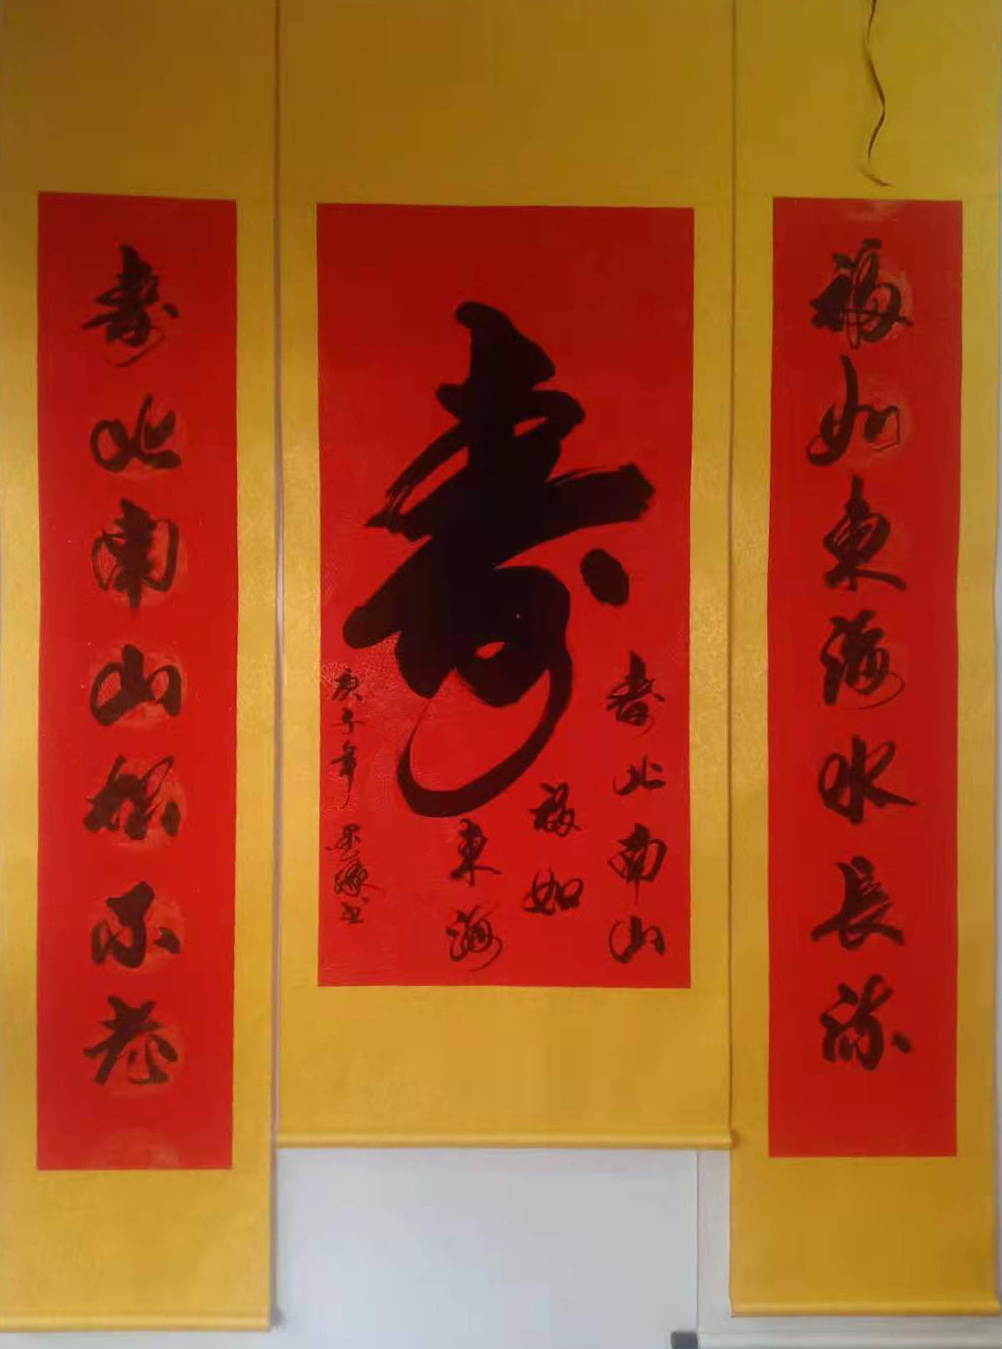 福如東海水長流
壽
壽比南山
福如
東海
庚子年
壽比南山松不老